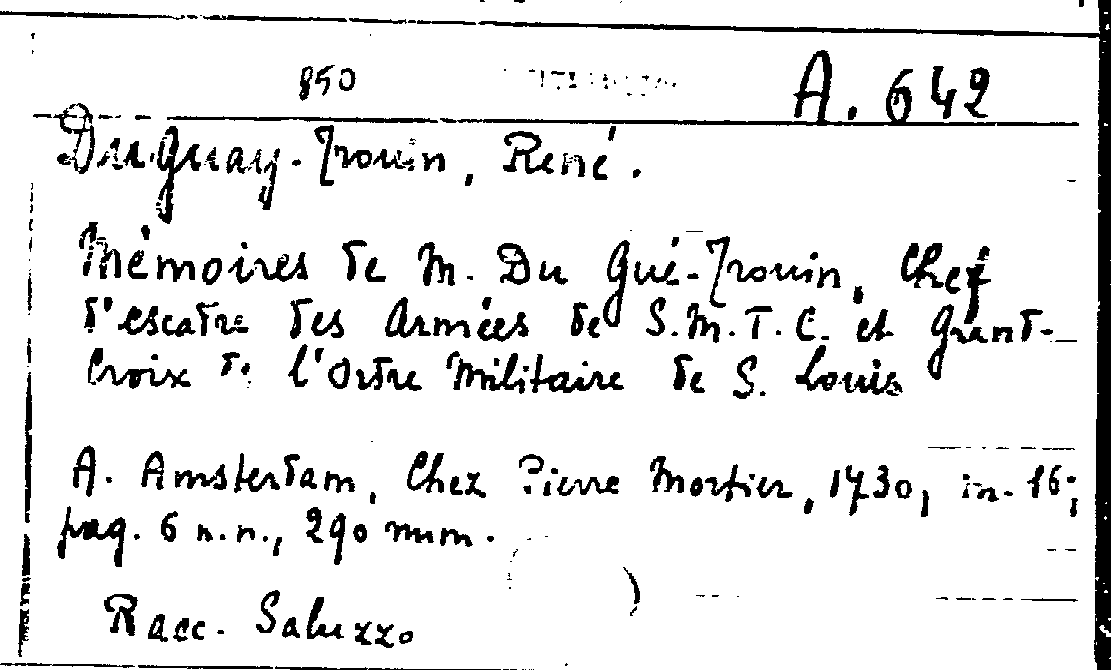 850 A. 642
Du Guay-Trouin, René.
Mémoires de M. Du Gué-Trouin, Chef
d'escadre des Armées de S.M.T.C. et Grand-
Croix de l'Ordre Militaire de S. Louis
A. Amsterdam, Chez Pierre Mortier, 1730, in-16°;
pag. 6 n.n., 290 num.
Racc. Saluzzo